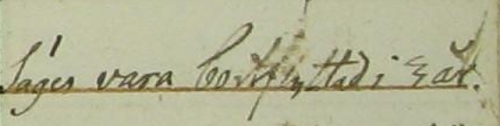 Säges vara bortflyttad i 3 år.